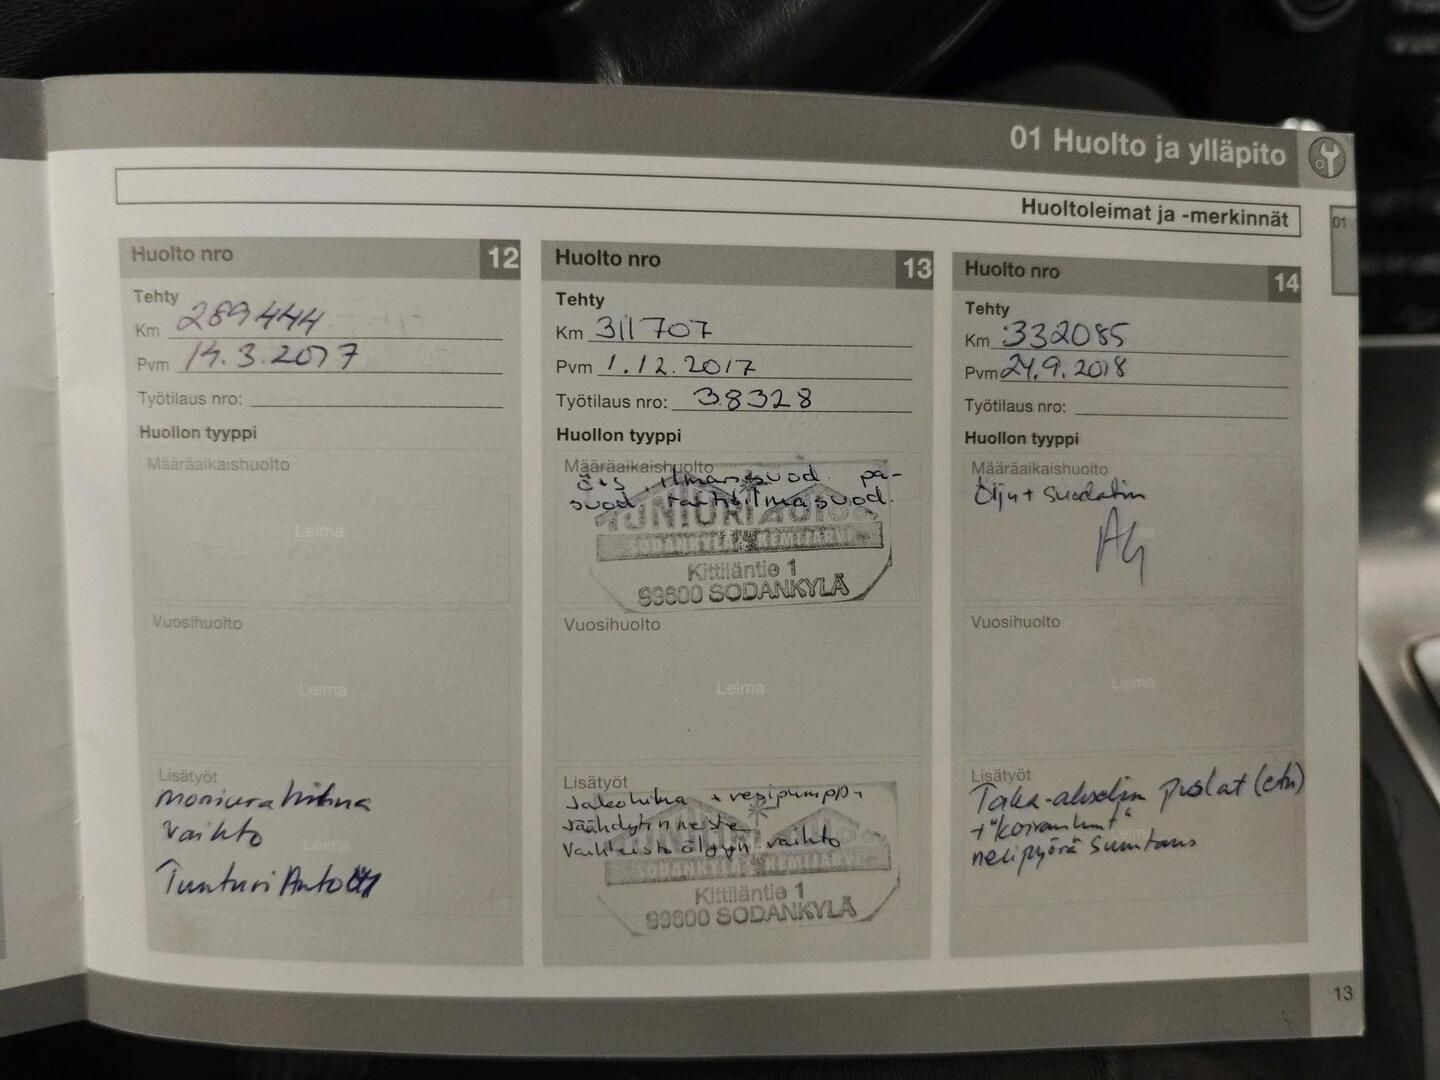 01 Huolto ja ylläpito
Huoltoleimat ja -merkinnät
01
Huolto nro 12
Tehty
Km 289444
Pvm 14.3.2017
Työtilaus nro:
Huollon tyyppi
Määräaikaishuolto
Leima
Vuosihuolto
Leima
Lisätyöt
moniurahihna
vaihto
Leima
Tunturi Auto
Huolto nro 13
Tehty
Km 311707
Pvm 1.12.2017
Työtilaus nro: 38328
Huollon tyyppi
Määräaikaishuolto
ö+s, ilmansuod. pa-
suod. raitisilmasuod.
SODANKYLÄ KEMIJÄRVI
Kittiläntie 1
99600 SODANKYLÄ
Vuosihuolto
Leima
Lisätyöt
Jakohihna + vesipumppu
jäähdytinneste
vaihteistoöljyn vaihto
SODANKYLÄ KEMIJÄRVI
Kittiläntie 1
99600 SODANKYLÄ
Huolto nro 14
Tehty
Km 332085
Pvm 24.9.2018
Työtilaus nro:
Huollon tyyppi
Määräaikaishuolto
Öljy + suodatin
Vuosihuolto
Leima
Lisätyöt
Taka-akselin puslat (etu)
+ "koiranluut"
nelipyörä suuntaus
13